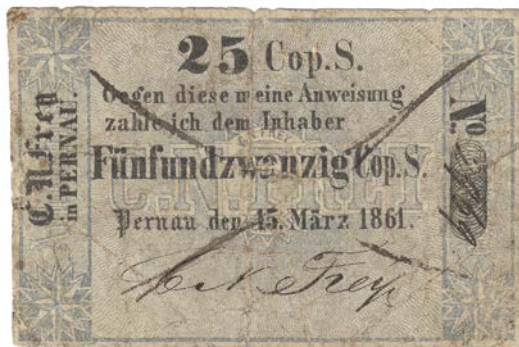 25 Cop. S.
Gegen diese meine Anweisung
zahle ich dem Inhaber
Fünfundzwanzig Cop. S.
Pernau den 15. März 1861.
C N Frey
C. N Frey
in PERNAU.
No.
C. N. FREY